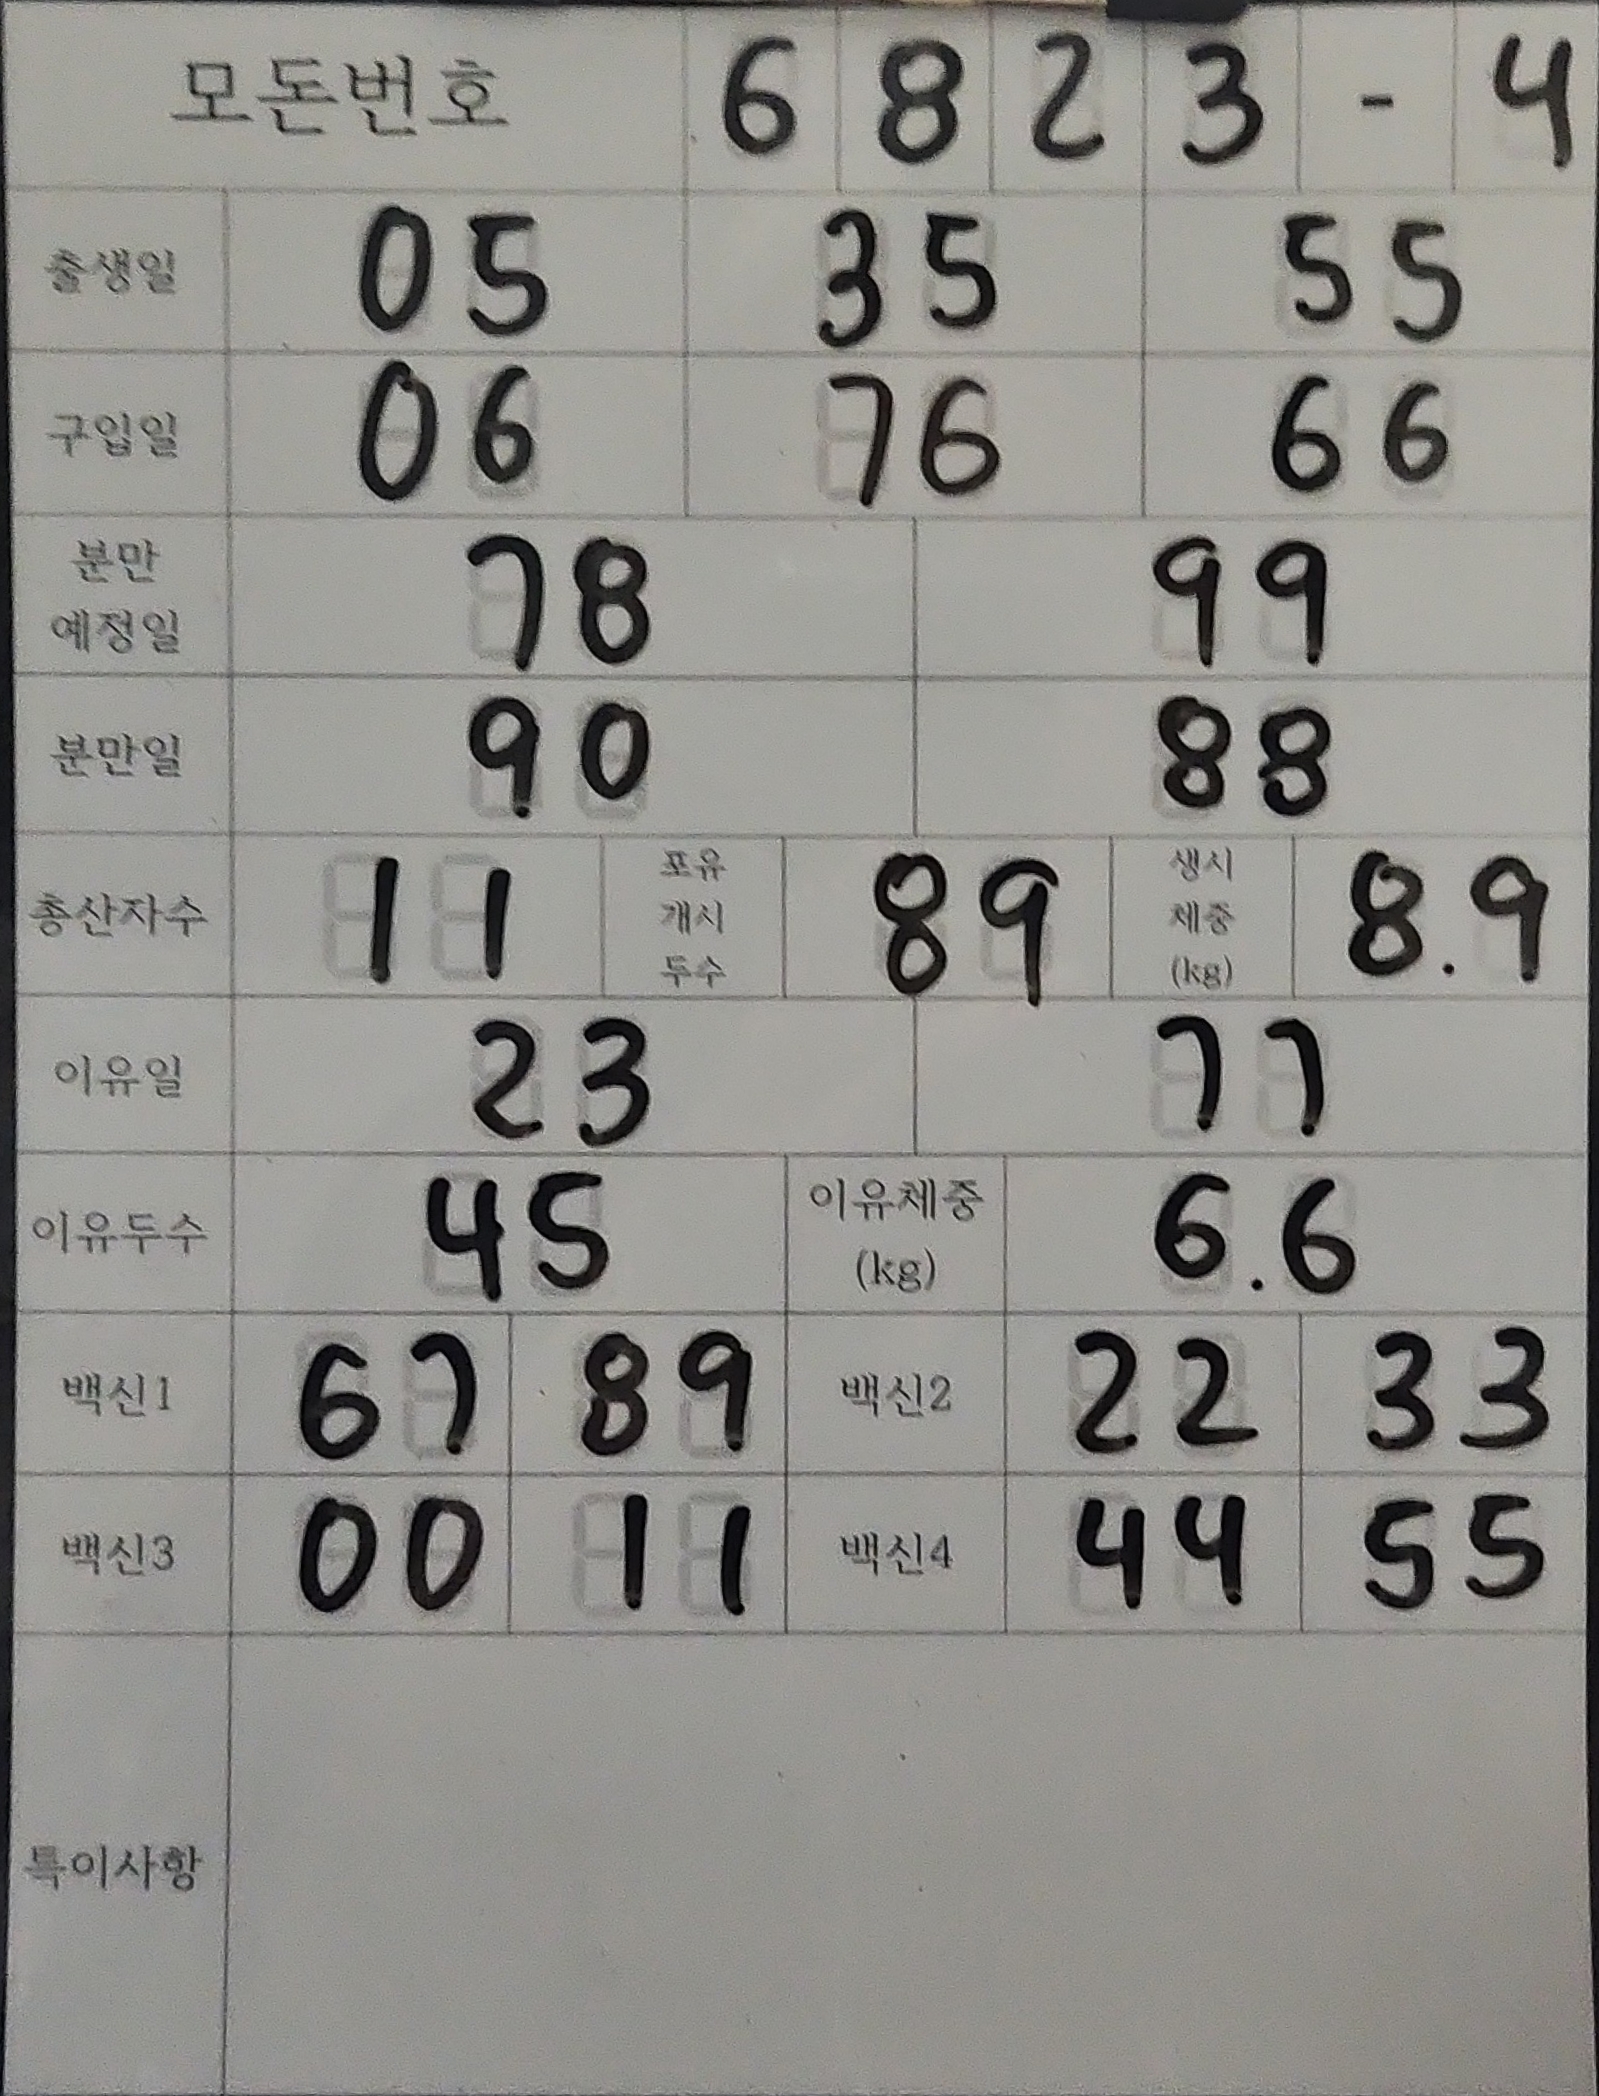 모돈번호 6 8 2 3 - 4
출생일 05 35 55
구입일 06 76 66
분만
예정일 78 99
분만일 90 88
총산자수 11 포유 개시 두수 89 생시 체중 (kg) 8.9
이유일 23 77
이유두수 45 이유체중 (kg) 6.6
백신1 67 89 백신2 22 33
백신3 00 11 백신4 44 55
특이사항